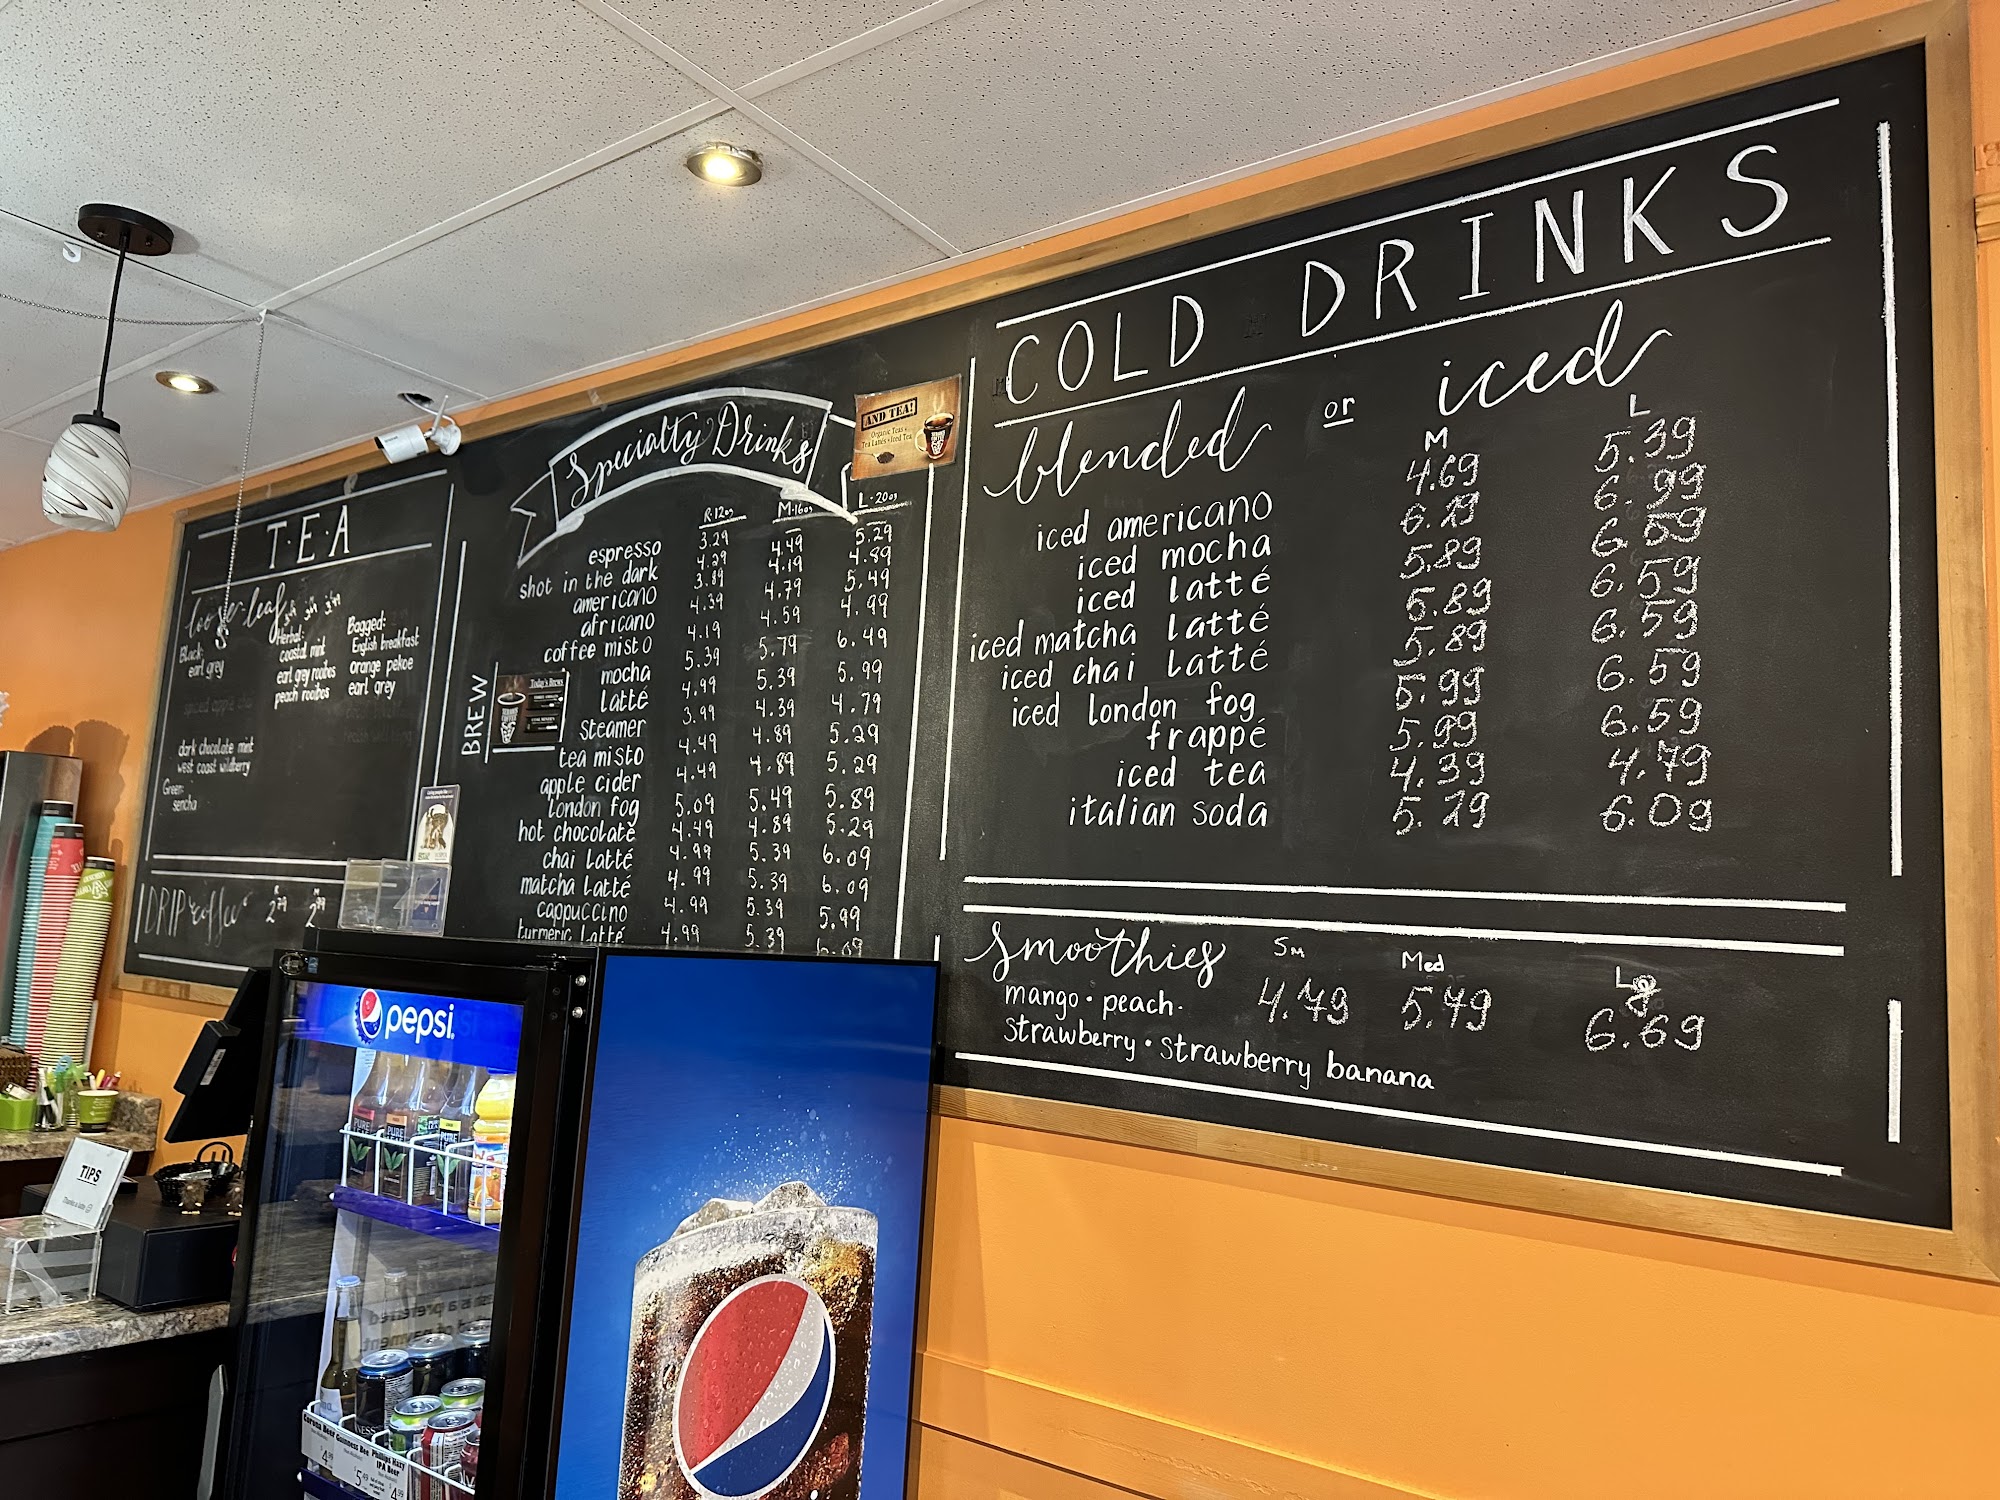 T·E·A
loose-leaf
Black:
earl grey
dark chocolate mint
west coast wildberry
Green:
sencha
Herbal:
coastal mint
earl grey rooibos
peach rooibos
Bagged:
English breakfast
orange pekoe
earl grey
DRIP coffee
R M
2 79 2
BREW
Today's Brews
Specialty Drinks
AND TEA!
Organic Teas
Tea Lattés Iced Tea
R·12oz M·16oz L·20oz
espresso 3.29
shot in the dark 4.29 4.49 5.29
americano 3.89 4.19 4.89
africano 4.39 4.79 5.49
coffee misto 4.19 4.59 4.99
mocha 5.39 5.79 6.49
latté 4.99 5.39 5.99
steamer 3.99 4.39 4.79
tea misto 4.49 4.89 5.29
apple cider 4.49 4.89 5.29
london fog 5.09 5.49 5.89
hot chocolate 4.49 4.89 5.29
chai latté 4.99 5.39 6.09
matcha latté 4.99 5.39 6.09
cappuccino 4.99 5.39 5.99
turmeric latté 4.99 5.39 6.09
COLD DRINKS
blended or iced
M L
iced americano 4.69 5.39
iced mocha 6.29 6.99
iced latté 5.89 6.59
iced matcha latté 5.89 6.59
iced chai latté 5.89 6.59
iced london fog 5.99 6.59
frappé 5.99 6.59
iced tea 4.39 4.79
italian soda 5.29 6.09
smoothies Sm Med Lg
mango · peach · 4.79 5.79 6.69
strawberry · strawberry banana
pepsi
PURE
PURE LEAF
PURE
TIPS
Corona Beer
4 99
Guinness Bee
5 49
Phillips Hazy
IPA Beer
4 99